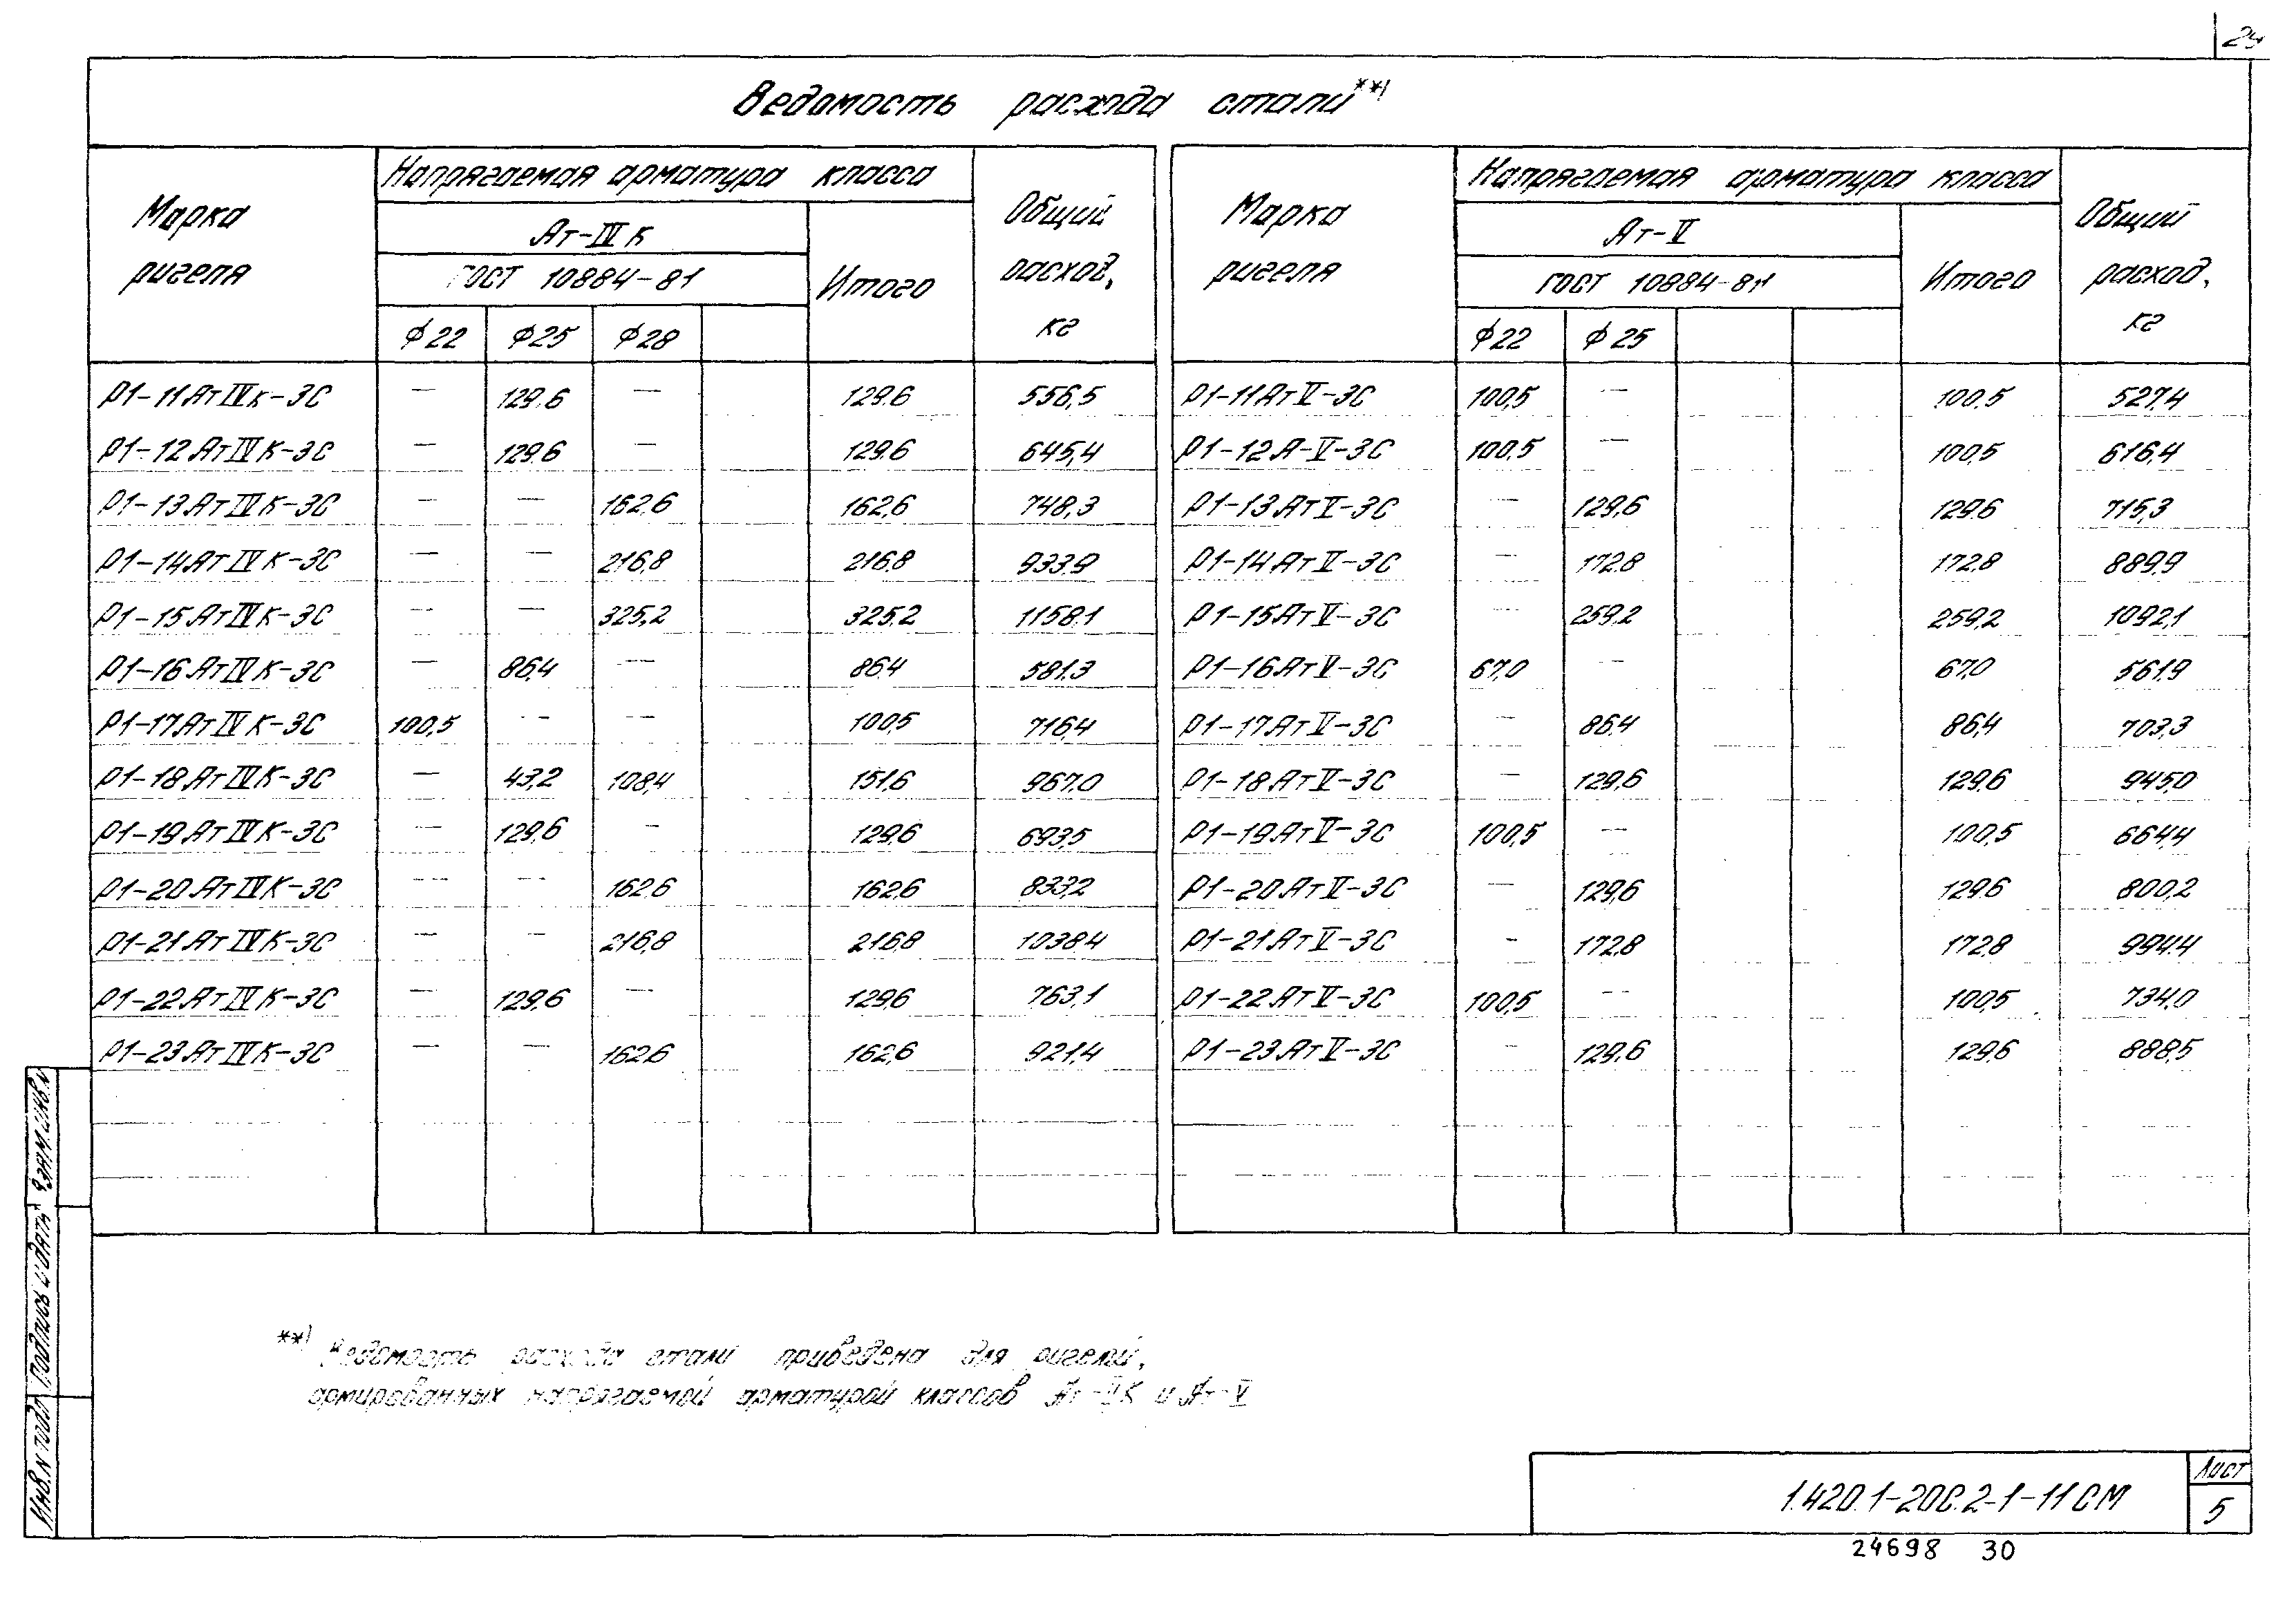 24
Ведомость расхода стали**)
Марка ригеля | Напрягаемая арматура класса | Общий расход, кг | Марка ригеля | Напрягаемая арматура класса | Общий расход, кг
Ат-IVК | Итого | Ат-V | Итого
ГОСТ 10884-81 | ГОСТ 10884-81
ф22 | ф25 | ф28 | ф22 | ф25
Р1-11АтIVК-3С — 129,6 — 129,6 556,5 Р1-11АтV-3С 100,5 — 100,5 527,4
Р1-12АтIVК-3С — 129,6 — 129,6 645,4 Р1-12А-V-3С 100,5 — 100,5 616,4
Р1-13АтIVК-3С — — 162,6 162,6 748,3 Р1-13АтV-3С — 129,6 129,6 715,3
Р1-14АтIVК-3С — — 216,8 216,8 933,9 Р1-14АтV-3С — 172,8 172,8 889,9
Р1-15АтIVК-3С — — 325,2 325,2 1158,1 Р1-15АтV-3С — 259,2 259,2 1092,1
Р1-16АтIVК-3С — 86,4 — 86,4 581,3 Р1-16АтV-3С 67,0 — 67,0 561,9
Р1-17АтIVК-3С 100,5 — — 100,5 716,4 Р1-17АтV-3С — 86,4 86,4 703,3
Р1-18АтIVК-3С — 43,2 108,4 151,6 967,0 Р1-18АтV-3С — 129,6 129,6 945,0
Р1-19АтIVК-3С — 129,6 — 129,6 693,5 Р1-19АтV-3С 100,5 — 100,5 664,4
Р1-20АтIVК-3С — — 162,6 162,6 833,2 Р1-20АтV-3С — 129,6 129,6 800,2
Р1-21АтIVК-3С — — 216,8 216,8 1038,4 Р1-21АтV-3С — 172,8 172,8 994,4
Р1-22АтIVК-3С — 129,6 — 129,6 763,1 Р1-22АтV-3С 100,5 — 100,5 734,0
Р1-23АтIVК-3С — — 162,6 162,6 921,4 Р1-23АтV-3С — 129,6 129,6 888,5
**) Ведомость расхода стали приведена для ригелей,
армированных напрягаемой арматурой классов Ат-IVК и Ат-V
Инв.N подл. Подпись и дата Взам.инв.N
1.420.1-20С.2-1-11СМ
Лист
5
24698 30